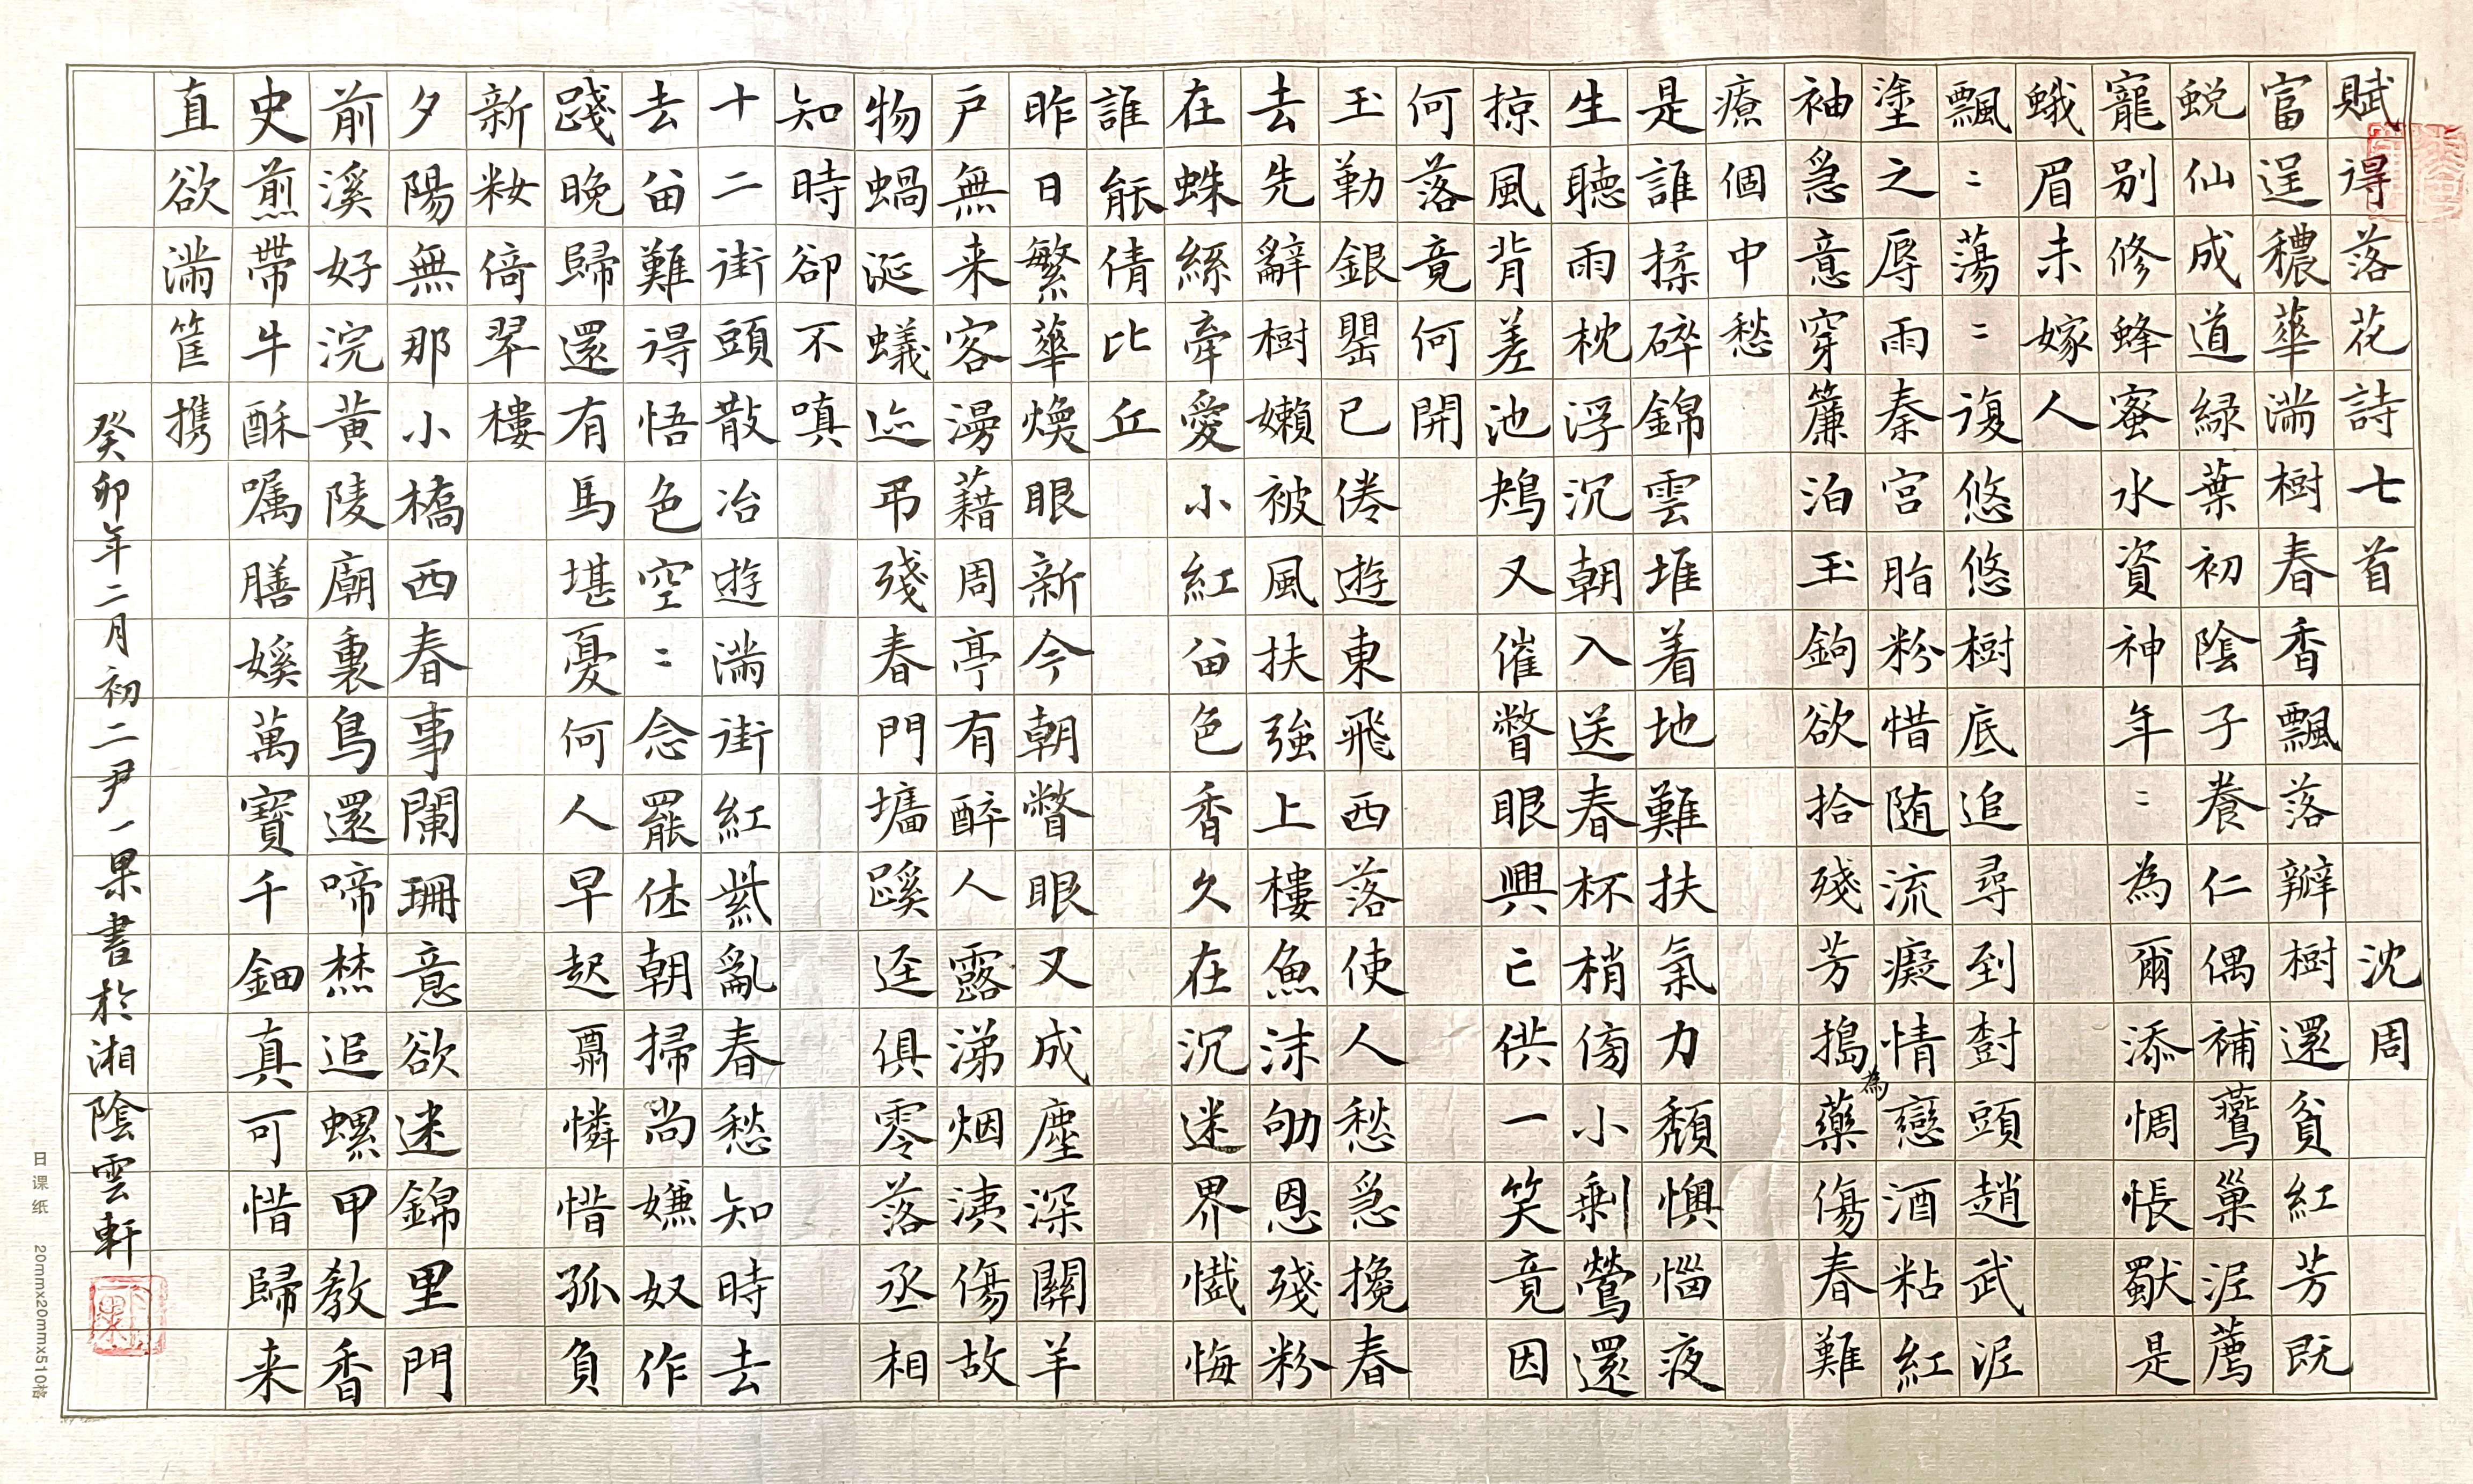 賦得落花詩七首 沈周
富逞穠華滿樹春香飄落瓣樹還貧紅芳既
蜕仙成道緑葉初陰子養仁偶補鶯巢泥薦
寵别修蜂蜜水資神年〻為爾添惆悵獸是
蛾眉未嫁人
飄〻蕩〻復悠悠樹底追尋到樹頭趙武泥
塗之辱雨秦宮脂粉惜随流癡情戀酒粘紅
袖急意穿簾泊玉鉤欲拾殘芳搗為藥傷春難
療個中愁
是誰揉碎錦雲堆着地難扶氣力頹懊惱夜
生聽雨枕浮沉朝入送春杯梢傍小剩鶯還
掠風背差池鴂又催瞥眼興亡供一笑竟因
何落竟何開
玉勒銀罌已倦遊東飛西落使人愁急攙春
去先辭樹嬾被風扶強上樓魚沫劬恩殘粉
在蛛絲牽愛小紅留色香久在沉迷界懺悔
誰能倩比丘
昨日繁華煥眼新今朝瞥眼又成塵深關羊
户無来客漫藉周亭有醉人露涕烟洟傷故
物蝸涎蟻迹弔殘春門墻蹊逕俱零落丞相
知時卻不嗔
十二街頭散冶遊滿街紅紫亂春愁知時去
去留難得悟色空〻念罷休朝掃尚嫌奴作
踐晚歸還有馬堪憂何人早起翻憐惜孤負
新妝倚翠樓
夕陽無那小橋西春事闌珊意欲迷錦里門
前溪好浣黄陵廟裏鳥還啼焚追螺甲教香
史煎帶牛酥囑膳媄萬寶千鈿真可惜歸来
直欲滿筐携
癸卯年二月初二尹一果書於湘陰雲軒
日课纸 20mmx20mmx510格